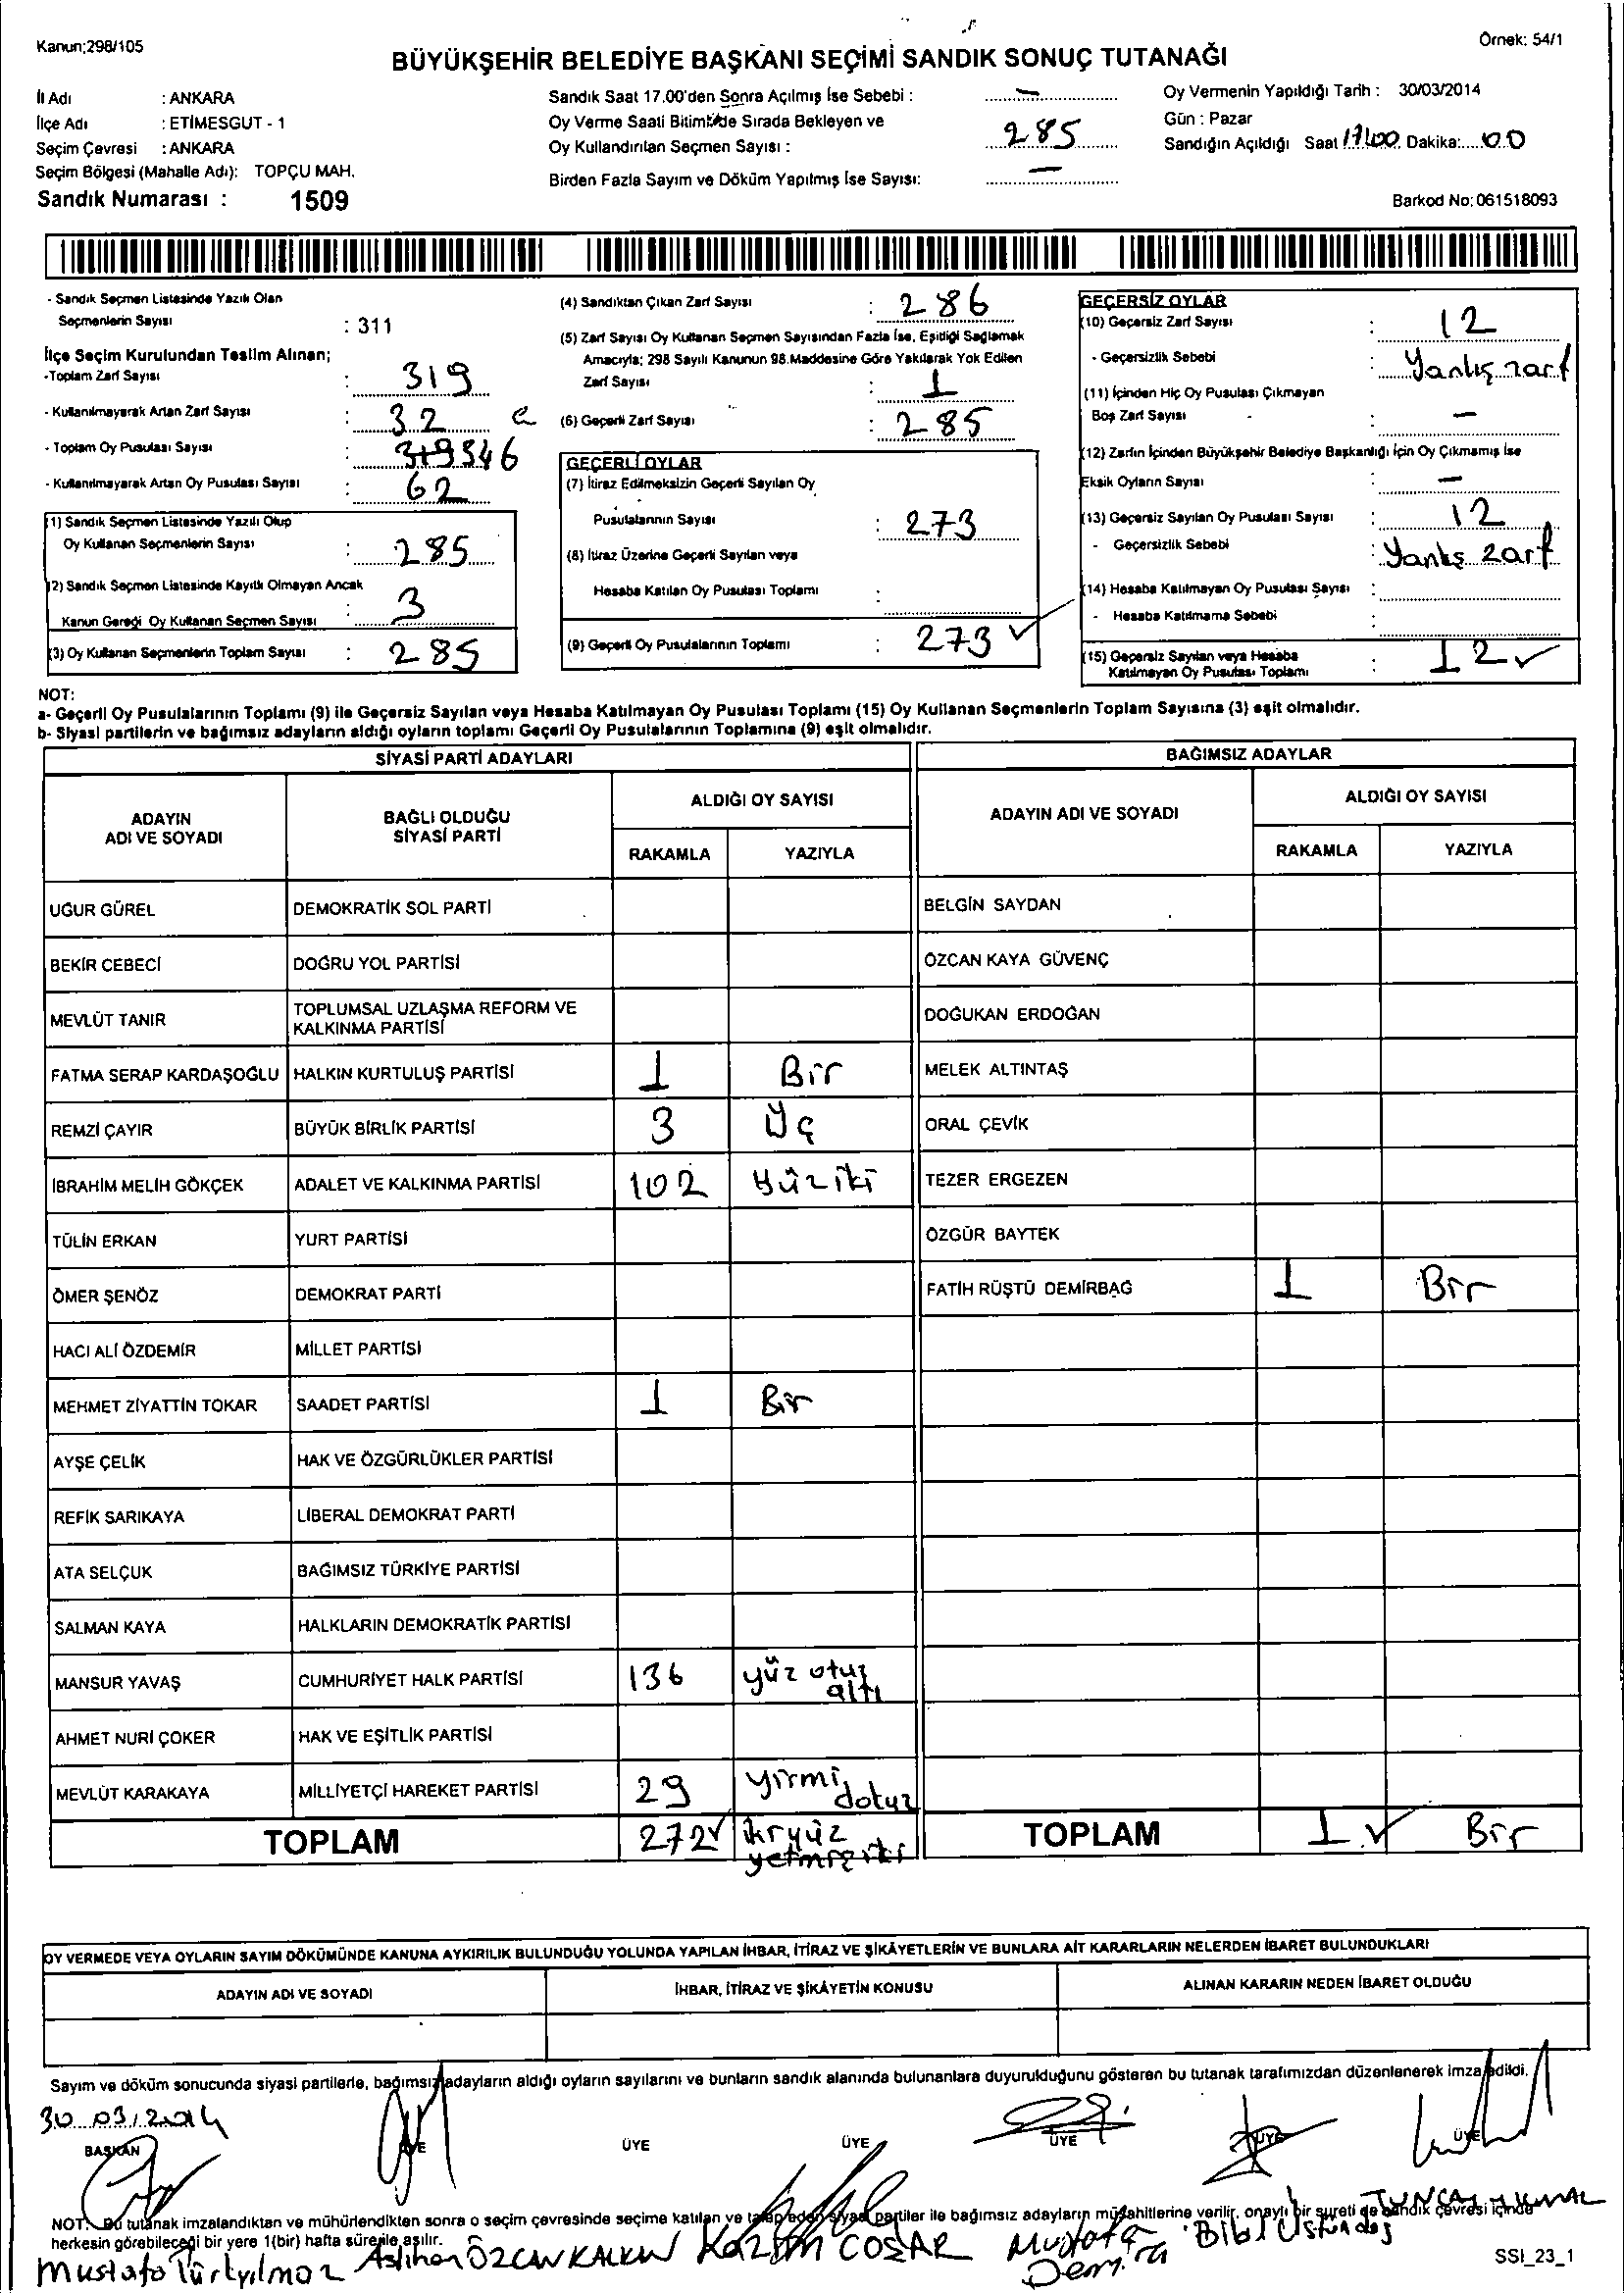 Kanun;298/105
Örnek: 54/1
BÜYÜKŞEHİR BELEDİYE BAŞKANI SEÇİMİ SANDIK SONUÇ TUTANAĞI
İl Adı : ANKARA
İlçe Adı : ETİMESGUT - 1
Seçim Çevresi : ANKARA
Seçim Bölgesi (Mahalle Adı): TOPÇU MAH.
Sandık Numarası : 1509
Sandık Saat 17.00'den Sonra Açılmış İse Sebebi : —
Oy Verme Saati Bitiminde Sırada Bekleyen ve
Oy Kullandırılan Seçmen Sayısı : 285
Birden Fazla Sayım ve Döküm Yapılmış İse Sayısı: —
Oy Vermenin Yapıldığı Tarih : 30/03/2014
Gün : Pazar
Sandığın Açıldığı Saat 17:00 Dakika: 00
Barkod No: 061518093
- Sandık Seçmen Listesinde Yazılı Olan
Seçmenlerin Sayısı : 311
İlçe Seçim Kurulundan Teslim Alınan;
-Toplam Zarf Sayısı : 319
- Kullanılmayarak Artan Zarf Sayısı : 32
- Toplam Oy Pusulası Sayısı : 319 346
- Kullanılmayarak Artan Oy Pusulası Sayısı : 62
(1) Sandık Seçmen Listesinde Yazılı Olup
Oy Kullanan Seçmenlerin Sayısı : 285
(2) Sandık Seçmen Listesinde Kayıtlı Olmayan Ancak
Kanun Gereği Oy Kullanan Seçmen Sayısı : 3
(3) Oy Kullanan Seçmenlerin Toplam Sayısı : 285
(4) Sandıktan Çıkan Zarf Sayısı : 286
(5) Zarf Sayısı Oy Kullanan Seçmen Sayısından Fazla İse, Eşitliği Sağlamak
Amacıyla; 298 Sayılı Kanunun 98.Maddesine Göre Yakılarak Yok Edilen
Zarf Sayısı : 1
(6) Geçerli Zarf Sayısı : 285
GEÇERLİ OYLAR
(7) İtiraz Edilmeksizin Geçerli Sayılan Oy
Pusulalarının Sayısı : 273
(8) İtiraz Üzerine Geçerli Sayılan veya
Hesaba Katılan Oy Pusulası Toplamı :
(9) Geçerli Oy Pusulalarının Toplamı : 273 ✓
GEÇERSİZ OYLAR
(10) Geçersiz Zarf Sayısı : 12
- Geçersizlik Sebebi : Yanlış zarf
(11) İçinden Hiç Oy Pusulası Çıkmayan
Boş Zarf Sayısı : —
(12) Zarfın İçinden Büyükşehir Belediye Başkanlığı İçin Oy Çıkmamış İse
Eksik Oyların Sayısı : —
(13) Geçersiz Sayılan Oy Pusulası Sayısı : 12
- Geçersizlik Sebebi : Yanlış zarf
(14) Hesaba Katılmayan Oy Pusulası Sayısı :
- Hesaba Katılmama Sebebi :
(15) Geçersiz Sayılan veya Hesaba
Katılmayan Oy Pusulası Toplamı : 12 ✓
NOT:
a- Geçerli Oy Pusulalarının Toplamı (9) ile Geçersiz Sayılan veya Hesaba Katılmayan Oy Pusulası Toplamı (15) Oy Kullanan Seçmenlerin Toplam Sayısına (3) eşit olmalıdır.
b- Siyasi partilerin ve bağımsız adayların aldığı oyların toplamı Geçerli Oy Pusulalarının Toplamına (9) eşit olmalıdır.
SİYASİ PARTİ ADAYLARI
BAĞIMSIZ ADAYLAR
ADAYIN
ADI VE SOYADI
BAĞLI OLDUĞU
SİYASİ PARTİ
ALDIĞI OY SAYISI
RAKAMLA YAZIYLA
ADAYIN ADI VE SOYADI
ALDIĞI OY SAYISI
RAKAMLA YAZIYLA
UĞUR GÜREL DEMOKRATİK SOL PARTİ BELGİN SAYDAN
BEKİR CEBECİ DOĞRU YOL PARTİSİ ÖZCAN KAYA GÜVENÇ
MEVLÜT TANIR TOPLUMSAL UZLAŞMA REFORM VE
KALKINMA PARTİSİ DOĞUKAN ERDOĞAN
FATMA SERAP KARDAŞOĞLU HALKIN KURTULUŞ PARTİSİ 1 Bir MELEK ALTINTAŞ
REMZİ ÇAYIR BÜYÜK BİRLİK PARTİSİ 3 Üç ORAL ÇEVİK
İBRAHİM MELİH GÖKÇEK ADALET VE KALKINMA PARTİSİ 102 Yüziki TEZER ERGEZEN
TÜLİN ERKAN YURT PARTİSİ ÖZGÜR BAYTEK
ÖMER ŞENÖZ DEMOKRAT PARTİ FATİH RÜŞTÜ DEMİRBAĞ 1 Bir
HACI ALİ ÖZDEMİR MİLLET PARTİSİ
MEHMET ZİYATTİN TOKAR SAADET PARTİSİ 1 Bir
AYŞE ÇELİK HAK VE ÖZGÜRLÜKLER PARTİSİ
REFİK SARIKAYA LİBERAL DEMOKRAT PARTİ
ATA SELÇUK BAĞIMSIZ TÜRKİYE PARTİSİ
SALMAN KAYA HALKLARIN DEMOKRATİK PARTİSİ
MANSUR YAVAŞ CUMHURİYET HALK PARTİSİ 136 yüz otuz
altı
AHMET NURİ ÇOKER HAK VE EŞİTLİK PARTİSİ
MEVLÜT KARAKAYA MİLLİYETÇİ HAREKET PARTİSİ 29 yirmi
dokuz
TOPLAM 272 ✓ ikiyüz
yetmiş iki TOPLAM 1 ✓ Bir
OY VERMEDE VEYA OYLARIN SAYIM DÖKÜMÜNDE KANUNA AYKIRILIK BULUNDUĞU YOLUNDA YAPILAN İHBAR, İTİRAZ VE ŞİKÂYETLERİN VE BUNLARA AİT KARARLARIN NELERDEN İBARET BULUNDUKLARI
ADAYIN ADI VE SOYADI İHBAR, İTİRAZ VE ŞİKÂYETİN KONUSU ALINAN KARARIN NEDEN İBARET OLDUĞU
Sayım ve döküm sonucunda siyasi partilerle, bağımsız adayların aldığı oyların sayılarını ve bunların sandık alanında bulunanlara duyurulduğunu gösteren bu tutanak tarafımızdan düzenlenerek imza edildi.
30 03/2014
BAŞKAN ÜYE ÜYE ÜYE ÜYE ÜYE ÜYE
NOT: Bu tutanak imzalandıktan ve mühürlendikten sonra o seçim çevresinde seçime katılan ve talep eden siyasi partiler ile bağımsız adayların müşahitlerine verilir, onaylı bir sureti de sandık çevresi içinde
herkesin görebileceği bir yere 1(bir) hafta süre ile asılır.
Mustafa Türkyılmaz Aslıhan ÖZCAN KALKIN Kazım COŞAR Mustafa
TUNCAY
SSI_23_1